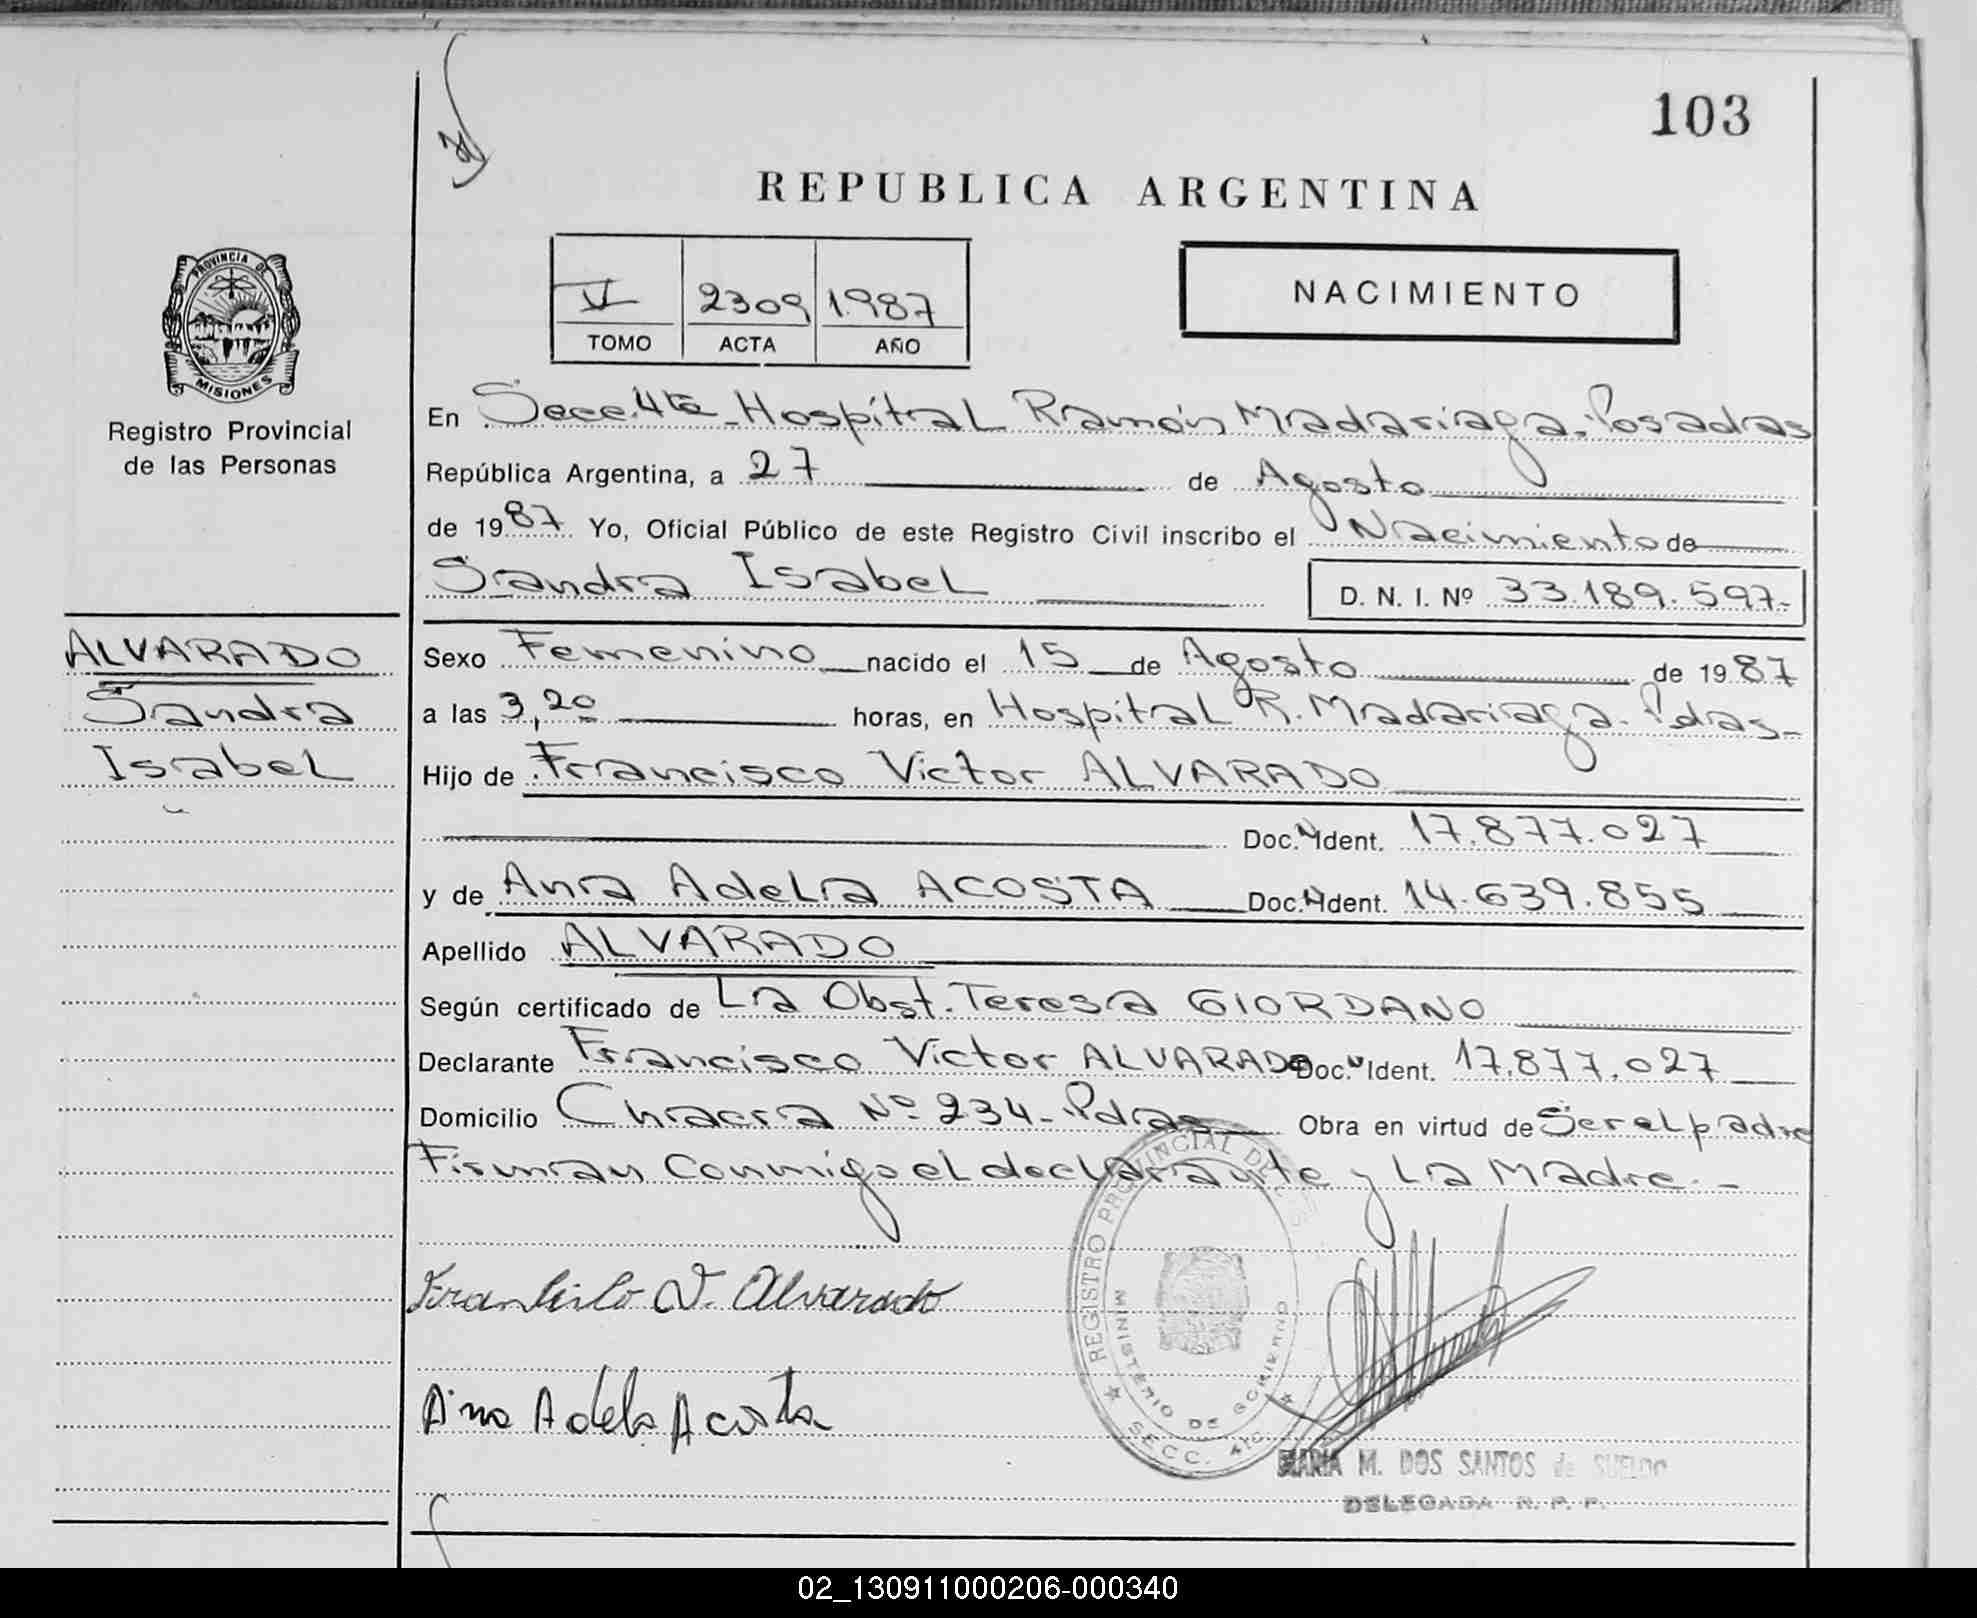 103
REPUBLICA ARGENTINA
PROVINCIA DE
MISIONES
Registro Provincial
de las Personas
V 2309 1.987
TOMO ACTA AÑO
NACIMIENTO
En Secc. 4ta - Hospital Ramón Madariaga. Posadas
República Argentina, a 27 de Agosto
de 1987 Yo, Oficial Público de este Registro Civil inscribo el Nacimiento de
Sandra Isabel
D. N. I. Nº 33.189.597.-
ALVARADO
Sandra
Isabel
Sexo Femenino nacido el 15 de Agosto de 1987
a las 3,20 horas, en Hospital R. Madariaga. Pdas-
Hijo de Francisco Victor ALVARADO
Doc. N Ident. 17.877.027
y de Ana Adela ACOSTA Doc. N Ident. 14.639.855
Apellido ALVARADO
Según certificado de La Obst. Teresa GIORDANO
Declarante Francisco Victor ALVARADO Doc. N Ident. 17.877.027
Domicilio Chacra Nº 234- Pdas Obra en virtud de Ser el padre
Firman Conmigo el declarante y La Madre.-
Francisco V. Alvarado
Ana Adela Acosta
REGISTRO PROVINCIAL DE
MINISTERIO DE GOBIERNO
SECC. 4ta
MARIA M. DOS SANTOS de SUELDO
DELEGADA R. P. P.
02_130911000206-000340